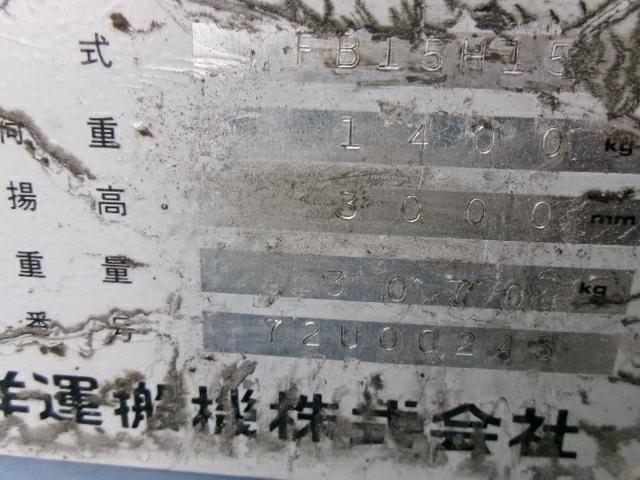 式 FB15H15
荷重 1400 kg
揚高 3000 mm
重量 3070 kg
番号 72U00243
洋運搬機株式会社